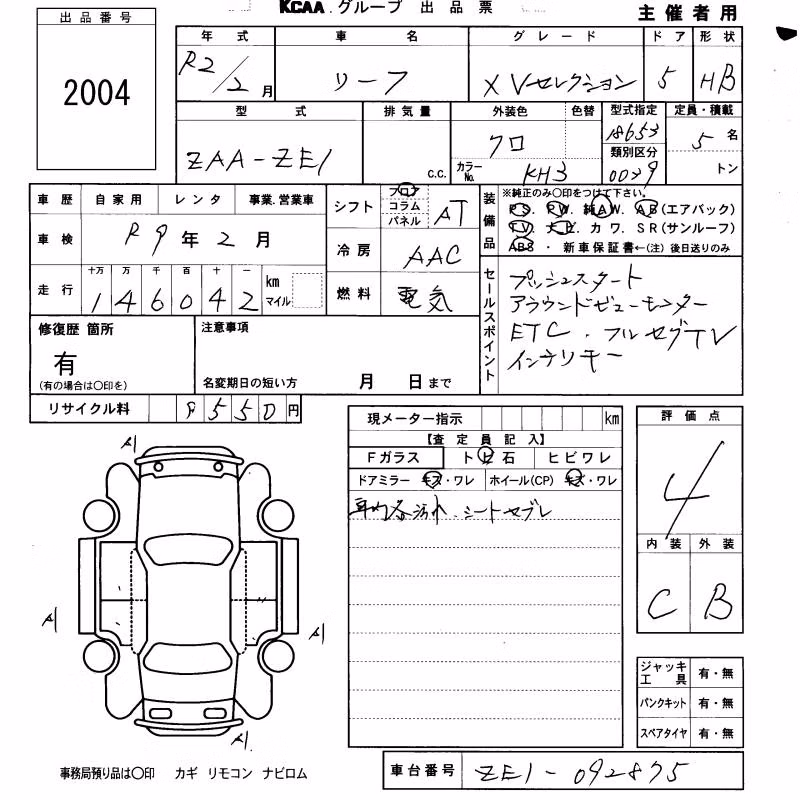 KCAA.グループ 出品票
主催者用
出品番号
2004
年式 車名 グレード ドア 形状
R2/2月 リーフ XVセレクション 5 HB
型式 排気量 外装色 色替 型式指定 定員・積載
ZAA-ZE1 C.C. クロ 18653 5名
カラーNo. KH3 類別区分 0029 トン
車歴 自家用 レンタ 事業.営業車
車検 R9年2月
走行 十万 万 千 百 十 一
146042 km マイル
シフト フロア コラム パネル AT
冷房 AAC
燃料 電気
装備品 ※純正のみ○印をつけて下さい。
PS. PW. 純AW. AB(エアバック)
TV. ナビ. カワ. SR(サンルーフ)
ABS・新車保証書←(注)後日送りのみ
セールスポイント
プッシュスタート
アラウンドビューモニター
ETC.フルセグTV
インテリキー
修復歴 箇所
有
(有の場合は○印を)
注意事項
名変期日の短い方 月 日まで
リサイクル料 9550円
現メーター指示 km
【査定員記入】
Fガラス トビ石 ヒビワレ
ドアミラー キズ・ワレ ホイール(CP) キズ・ワレ
車内各汚れ.シートセブレ
評価点
4
内装 外装
C B
A1
A1
A1
A1
ジャッキ工具 有・無
パンクキット 有・無
スペアタイヤ 有・無
事務局預り品は○印 カギ リモコン ナビロム
車台番号 ZE1-092875